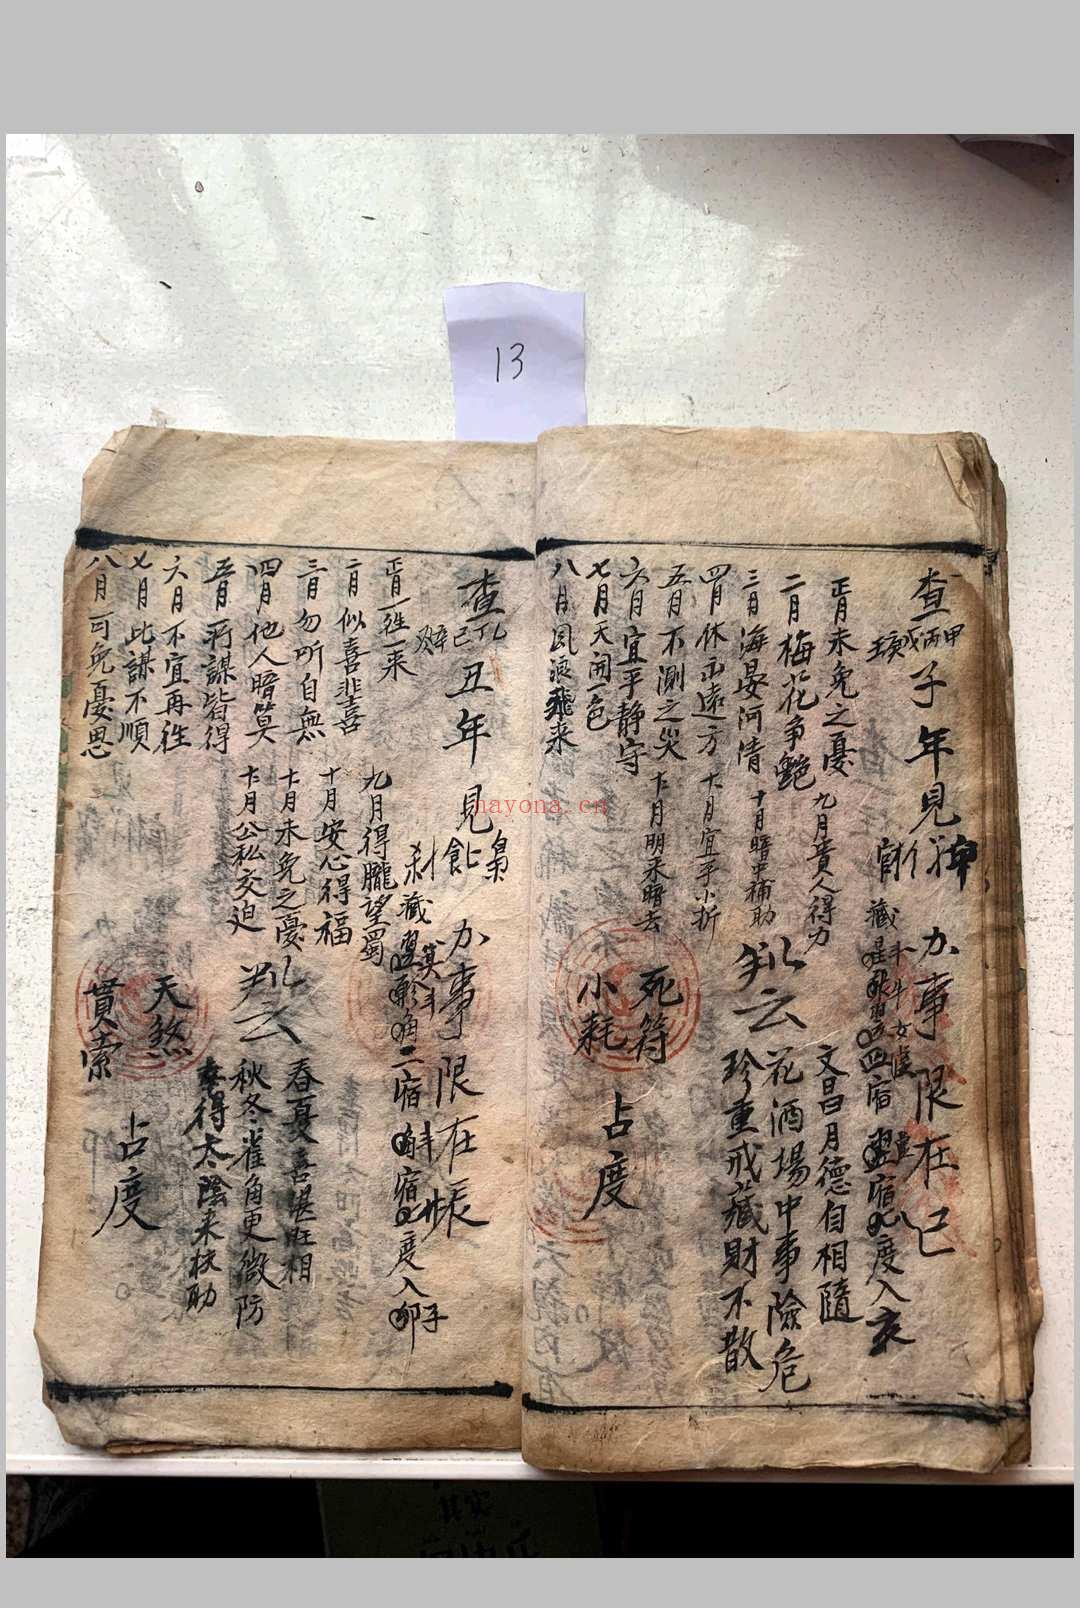 13
查
甲丙戊
子年見
官
办事限在己
藏
四宿
宿
度入亥
正月未免之憂
二月梅花争艷
三月海晏河清
四月休圖遠方
五月不測之災
六月宜平静守
七月天開一色
八月風浪飛来
九月貴人得力
十月暗中補助
十一月宜平小折
十二月明来暗去
判云
文昌月德自相隨
花酒場中事險危
珍重戒藏財不散
死符
小耗
占度
查
乙己
丑年見
梟
办事限在
刹藏
二宿
宿
度入
子
正月一往一来
二月似喜非喜
三月勿听自無
四月他人暗算
五月所謀皆得
六月不宜再往
七月此謀不順
八月可免憂思
九月得隴望蜀
十月安心得福
十一月未免之憂
十二月公私交迫
判云
春夏喜堪旺相
秋冬雀角更微防
幸得太陰来扶助
天煞
貫索
占度
nayona.cn
其实